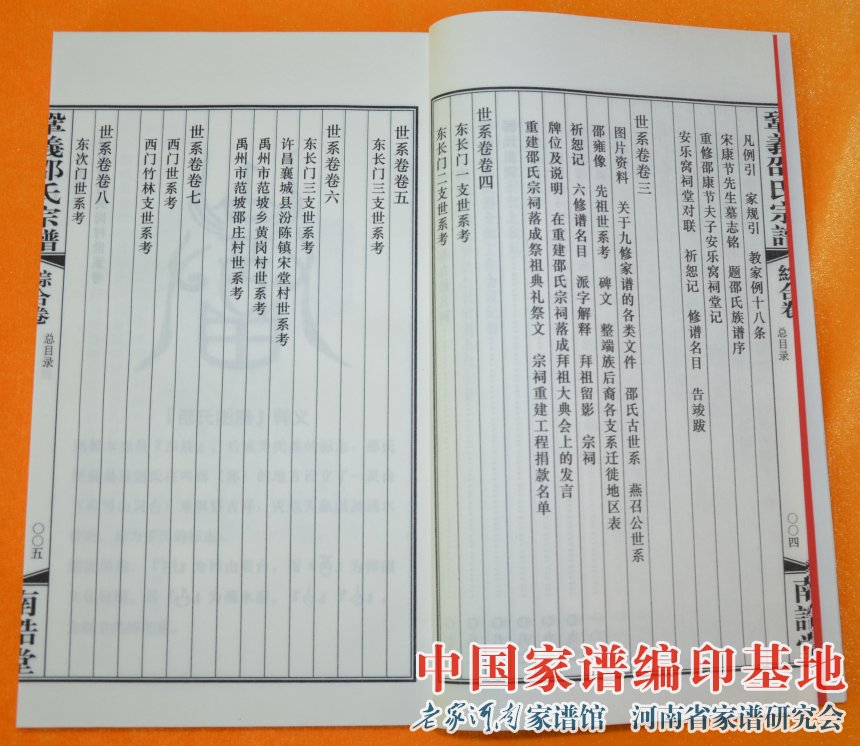 鞏義邵氏宗譜
綜合卷
总目录
〇〇四
凡例引 家规引 教家例十八条
宋康节先生墓志铭 题邵氏族谱序
重修邵康节夫子安乐窝祠堂记
安乐窝祠堂对联 祈恕记 修谱名目 告竣跋
世系卷卷三
图片资料 关于九修家谱的各类文件 邵氏古世系 燕召公世系
邵雍像 先祖世系考 碑文 整端族后裔各支系迁徙地区表
祈恕记 六修谱名目 派字解释 拜祖留影 宗祠
牌位及说明 在重建邵氏宗祠落成拜祖大典会上的发言
重建邵氏宗祠落成祭祖典礼祭文 宗祠重建工程捐款名单
世系卷卷四
东长门一支世系考
东长门二支世系考
世系卷卷五
东长门三支世系考
世系卷卷六
东长门三支世系考
许昌襄城县汾陈镇宋堂村世系考
禹州市范坡乡黄岗村世系考
禹州市范坡邵庄村世系考
世系卷卷七
西门世系考
西门竹林支世系考
世系卷卷八
东次门世系考
鞏義邵氏宗譜
綜合卷
总目录
〇〇五
中国家谱编印基地
老家河南家谱馆 河南省家谱研究会